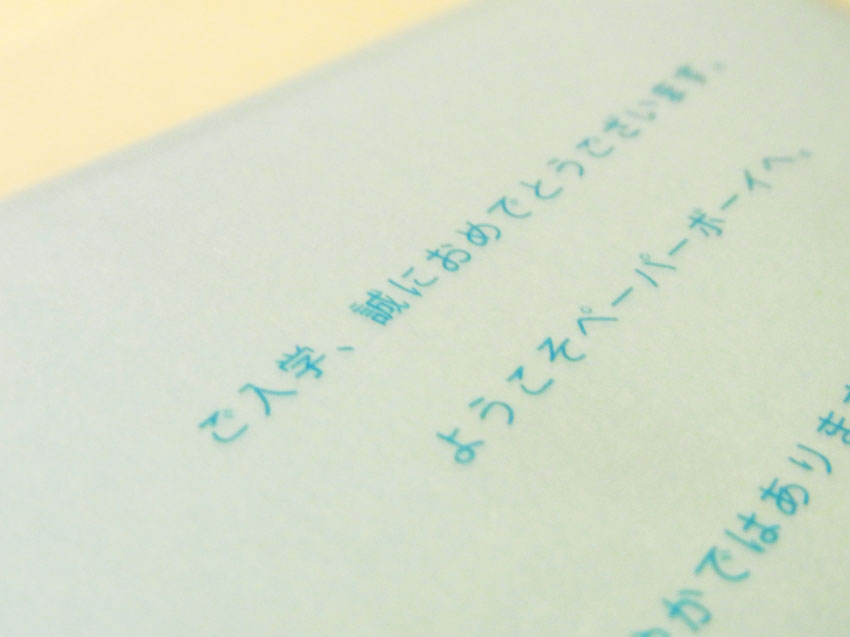 ご入学、誠におめでとうございます。
ようこそペーパーボーイへ。
かではありま